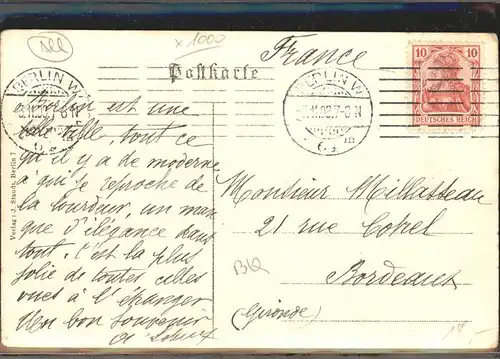 x 1000
France
Postkarte
BERLIN W
BERLIN W
10 10
DEUTSCHES REICH
Berlin est une
belle ville, tout ce
qu'il y a de moderne
à qui je reproche de
la lourdeur, un man
que d'élégance dans
tout. C'est la plus
jolie de toutes celles
vues à l'étranger
Un bon souvenir
Monsieur Millasseau
21 rue Cotrel
Bordeaux
(Gironde)
Verlag: J. Staudt, Berlin